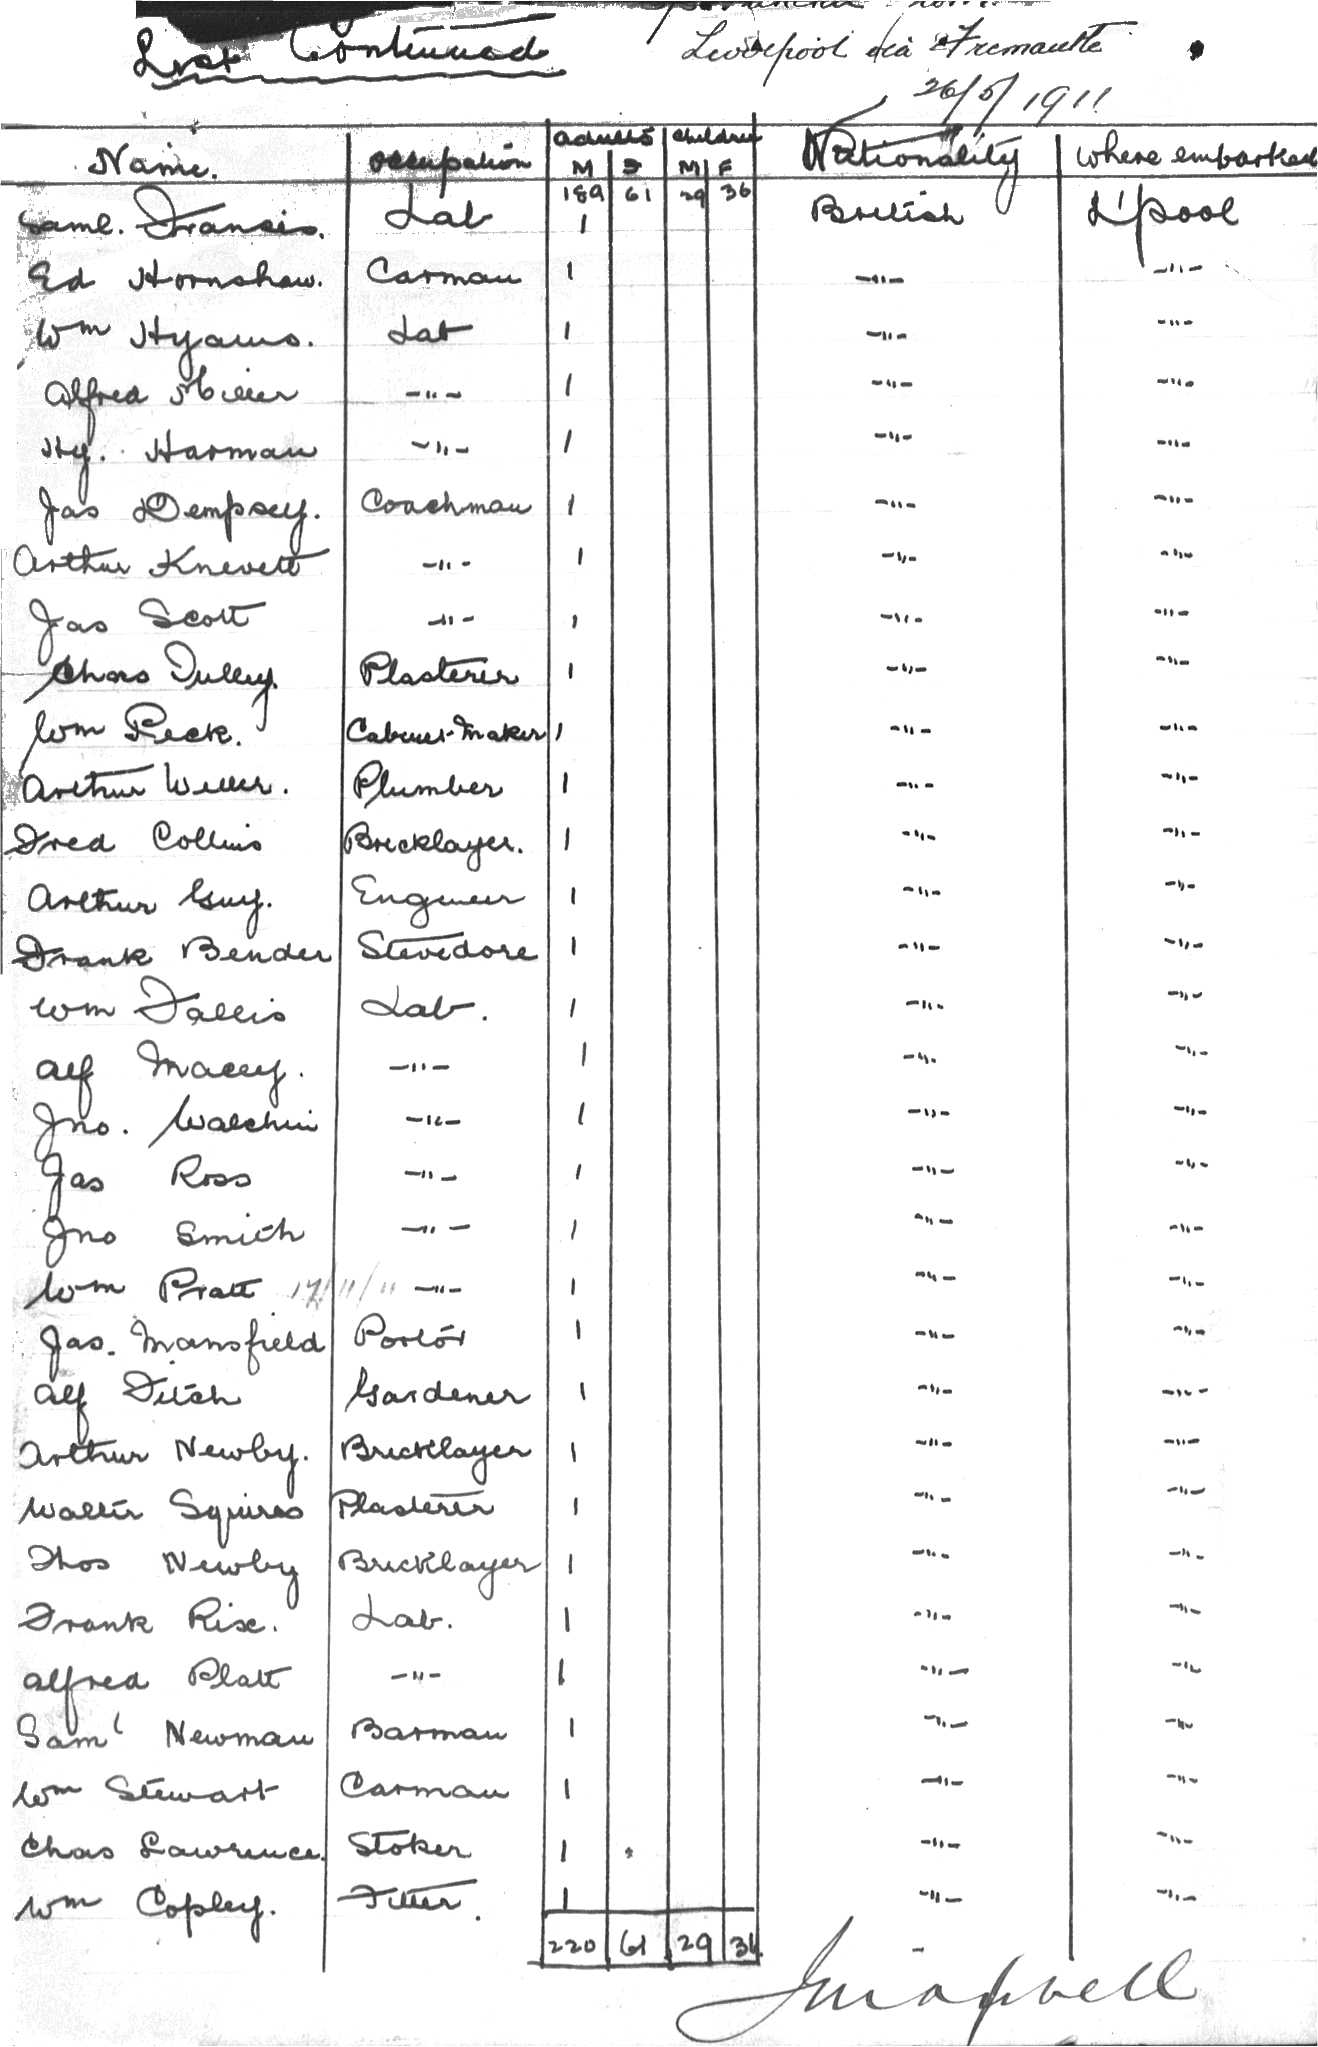 List Continued
from
Liverpool via Fremantle
26/5/1911
Name. Occupation Adults Children Nationality Where embarked
M F M F
189 61 29 36
Saml. Francis. Lab 1 British L'pool
Ed Hornshaw. Carman 1 -"- -"-
Wm Hyams. Lab 1 -"- -"-
Alfred Miller -"- 1 -"- -"-
Hy. Harman -"- 1 -"- -"-
Jas Dempsey. Coachman 1 -"- -"-
Arthur Knevett -"- 1 -"- -"-
Jas Scott -"- 1 -"- -"-
Chas Tulley. Plasterer 1 -"- -"-
Wm Peck. Cabinet-Maker 1 -"- -"-
Arthur Willer. Plumber 1 -"- -"-
Fred Collins Bricklayer. 1 -"- -"-
Arthur Guy. Engineer 1 -"- -"-
Frank Bender Stevedore 1 -"- -"-
Wm Fallis Lab. 1 -"- -"-
Alf Macey. -"- 1 -"- -"-
Jno. Walchin -"- 1 -"- -"-
Jas Ross -"- 1 -"- -"-
Jno Smith -"- 1 -"- -"-
Wm Pratt 17/11/11 -"- 1 -"- -"-
Jas. Mansfield Porter 1 -"- -"-
Alf Fitch Gardener 1 -"- -"-
Arthur Newby. Bricklayer 1 -"- -"-
Walter Squires Plasterer 1 -"- -"-
Thos Newby Bricklayer 1 -"- -"-
Frank Rix. Lab. 1 -"- -"-
Alfred Platt -"- 1 -"- -"-
Saml Newman Barman 1 -"- -"-
Wm Stewart Carman 1 -"- -"-
Chas Lawrence. Stoker 1 -"- -"-
Wm Copley. Fitter. 1 -"- -"-
220 61 29 36